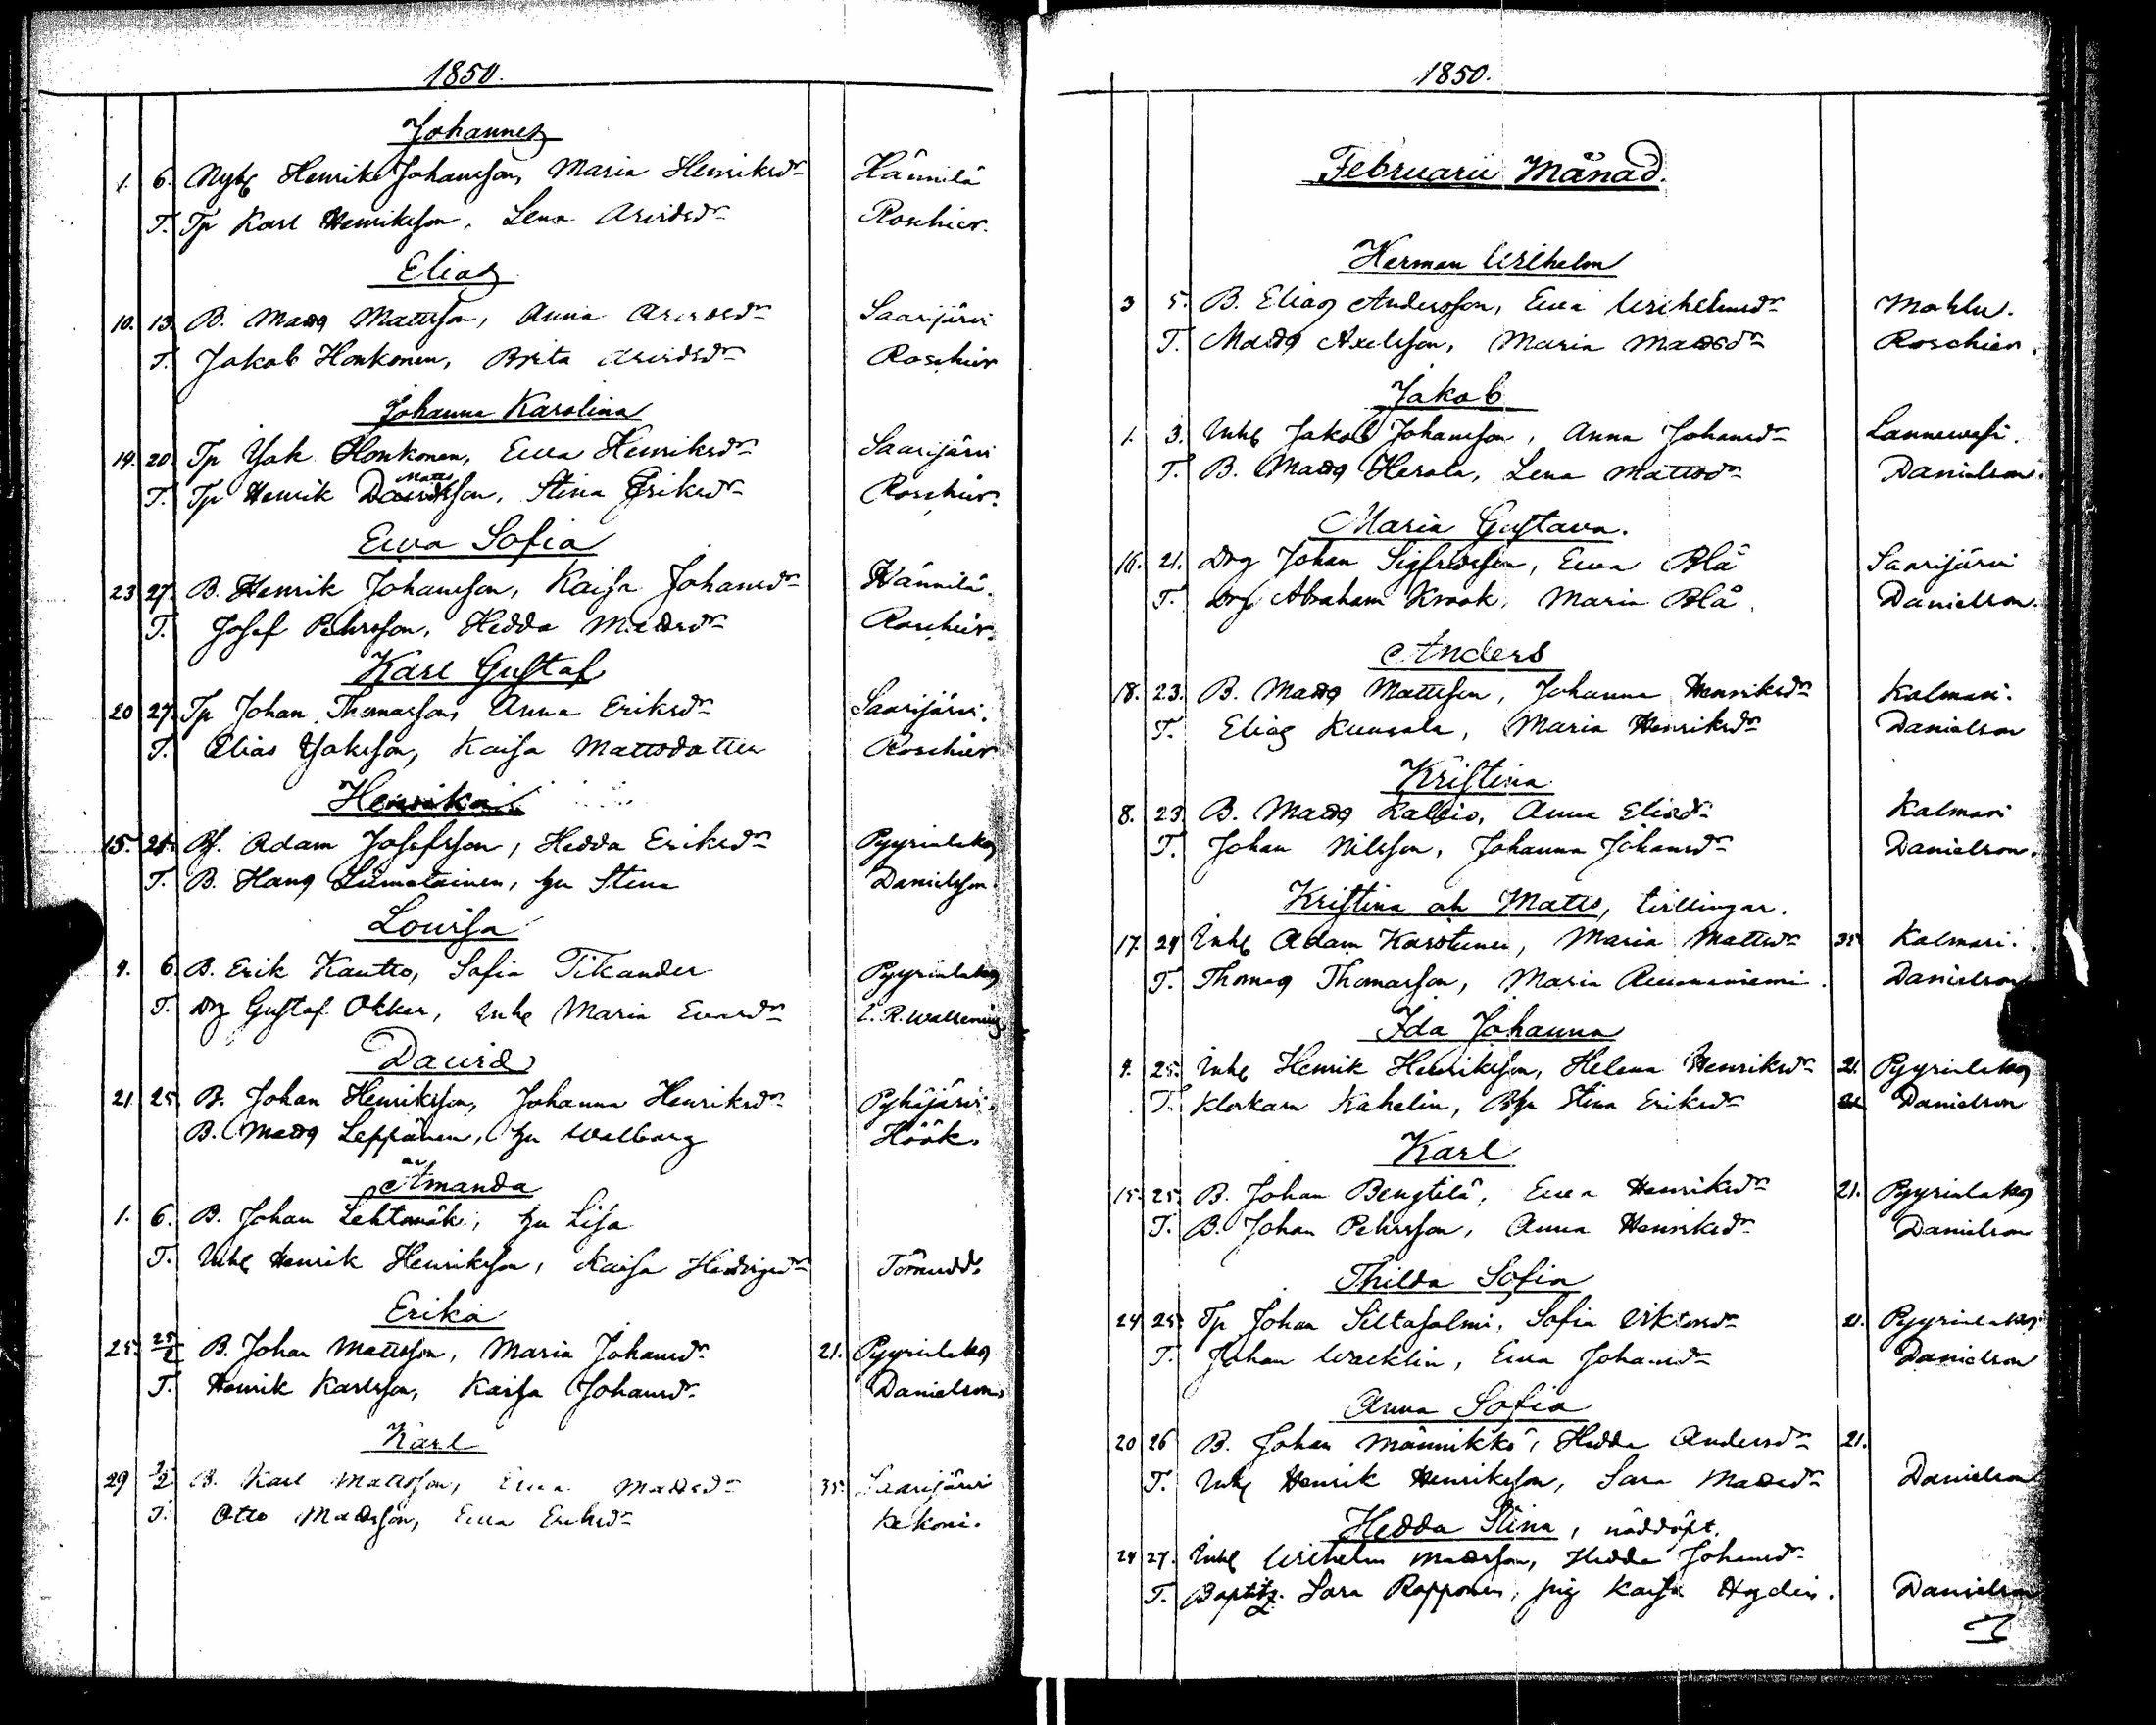 1850.
Johannes
1. 6. Nybg Henrik Johansson, Maria Henriksdr Hännilä
T. Tp Karl Henriksson, Lena Arvidsdr Roschier.
Elias
10. 13. B. Matts Mattsson, Anna Arvidsdr Saarijärvi
T. Jakob Honkonen, Brita Arvidsdr Roschier
Johanna Karolina
14. 20. Tp Jak Honkonen, Ewa Henriksdr Saarijärvi
Matts
T. Tp Henrik Davidsson, Stina Eriksdr Roschier.
Ewa Sofia
23 27. B. Henrik Johansson, Kaisa Johansdr Hännilä.
T. Josef Pehrsson, Hedda Mattsdr Roschier.
Karl Gustaf
20 27. Tp Johan Thomasson, Anna Eriksdr Saarijärvi.
T. Elias Jaksson, Kaisa Mattsdotter Roschier
Henrika
15. 25. Adam Josefsson, Hedda Eriksdr Pyyrinlaks
T. B. Hans Liimatainen, hu Stina Danielsson.
Lovisa
4. 6. B. Erik Kautto, Sofia Tikander Pyyrinlaks
T. Drg Gustaf Okker, Inhs Maria Evasdr
David
21. 25. B. Johan Henriksson, Johanna Henriksdr Pyhäjärvi.
B. Matts Leppänen, hu Walborg Höök.
Amanda
1. 6. B. Johan Lehtomäki, hu Lisa
T. Inhs Henrik Henriksson, Kaisa Törnudd.
Erika
25. 25/2 B. Johan Mattsson, Maria Johansdr 21. Pyyrinlaks
T. Henrik Karlsson, Kaisa Johansdr Danielson.
Karl
29 B. Karl Mattsson, Ewa Mattsdr 35. Saarijärvi
T. Otto Mattsson, Ewa Eriksdr Bekoni.
1850.
Februarii Månad.
Herman Wilhelm
3 5. B. Elias Andersson, Ewa Wilhelmsdr Mahlu.
T. Matts Axelsson, Maria Mattsdr Roschier.
Jakob
1. 3. Inhs Jakob Johansson, Anna Johansdr Lannewesi.
T. B. Matts Herala, Lena Mattsdr Danielson.
Maria Gustava.
16. 21. Drg Johan Sigfridsson, Ewa Blå Saarijärvi
T. Drg Abraham Krook, Maria Blå. Danielson.
Anders
18. 23. B. Matts Mattsson, Johanna Henriksdr Kalmari.
T. Elias Kuusala, Maria Henriksdr Danielson
Kristina
8. 23. B. Matts Kallio, Anna Eliasdr Kalmari
T. Johan Nilsson, Johanna Johansdr Danielson.
Kristina och Matts, tvillingar.
17. 24 Inhs Adam Karvtunen, Maria Mattsdr 35 Kalmari.
T. Thomas Thomasson, Maria Danielson
Ida Johanna
4. 25. Inhs Henrik Henriksson, Helena Henriksdr 21. Pyyrinlaks
T. Klockarn Kahelin, Stina Eriksdr Danielson
Karl
15. 25. B. Johan Bengtilä, Ewa Henriksdr 21. Pyyrinlaks
T. B. Johan Pehrsson, Anna Henriksdr Danielson
Thilda Sofia
24 25. Tp Johan Siltasalmi, Sofia Viktorsdr 21. Pyyrinlaks
T. Johan Wacklin, Ewa Johansdr Danielson
Anna Sofia
20 26 B. Johan Männikkö, Hedda Andersdr 21.
T. Inhs Henrik Henriksson, Sara Mattsdr Danielson
Hedda Stina, nöddöpt.
24 27. Inhs Wilhelm Mattsson, Hedda Johansdr
T. Baptitz. Sara Ropponen, pig Kaisa Hyden. Danielson